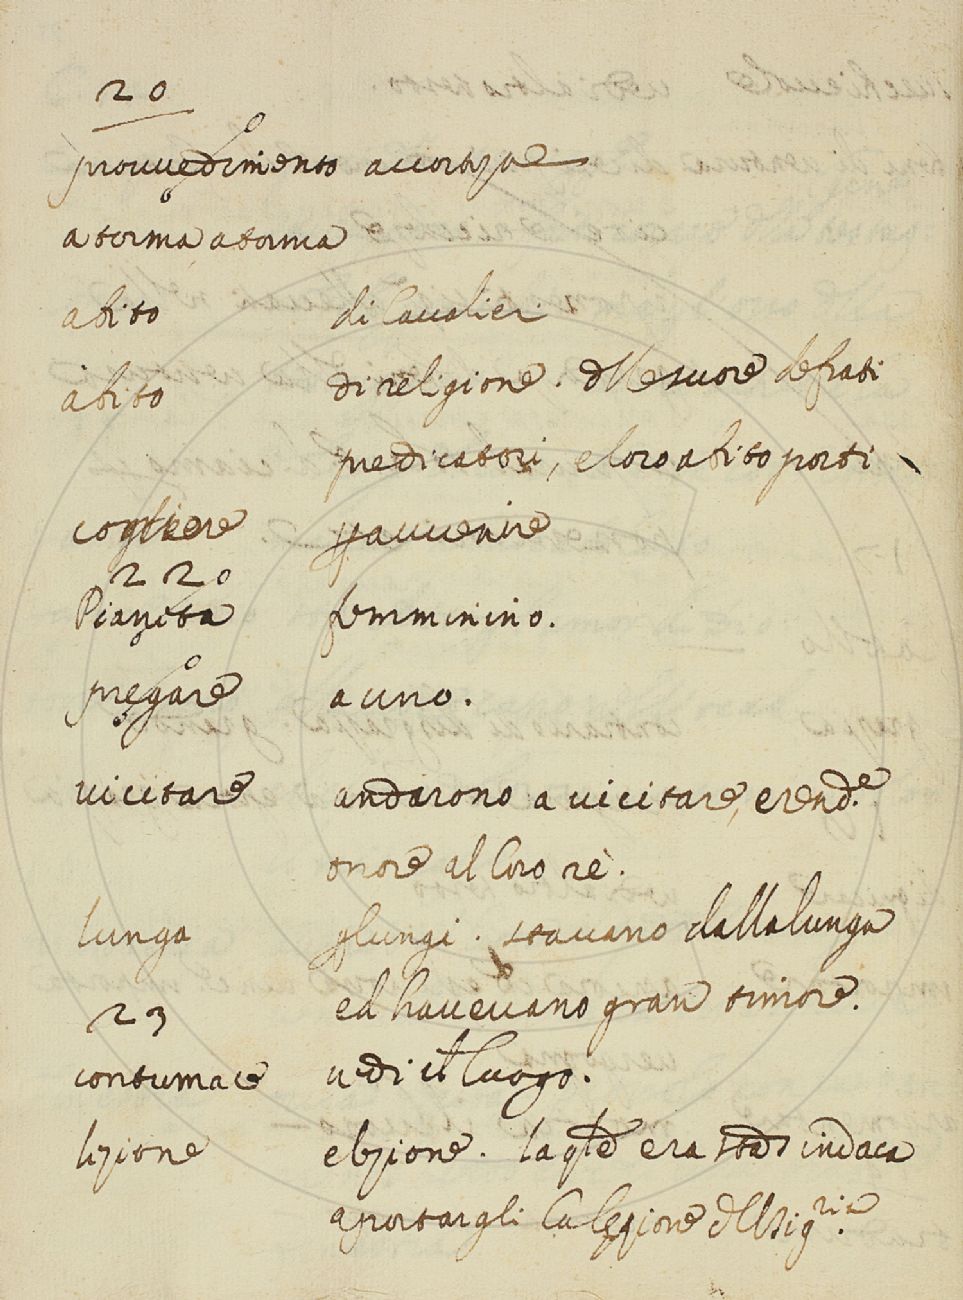 20
provvedimento accortezza
a torma, a torma
abito di Cavalier.
abito di religione. delle suore de frati
predicatori, e loro abito porti
cogliere p avvenire
220
Pianeta femminino.
pregare a uno.
vicitare andarono a vicitare, e rend.e
onore al loro rè.
lunga p lungi. stavano dalla lunga
ed havevano gran timore.
23
contumace vedi il luogo.
lezione elezione. la qle era stad sindaca
a portargli la lezione del sig.ria